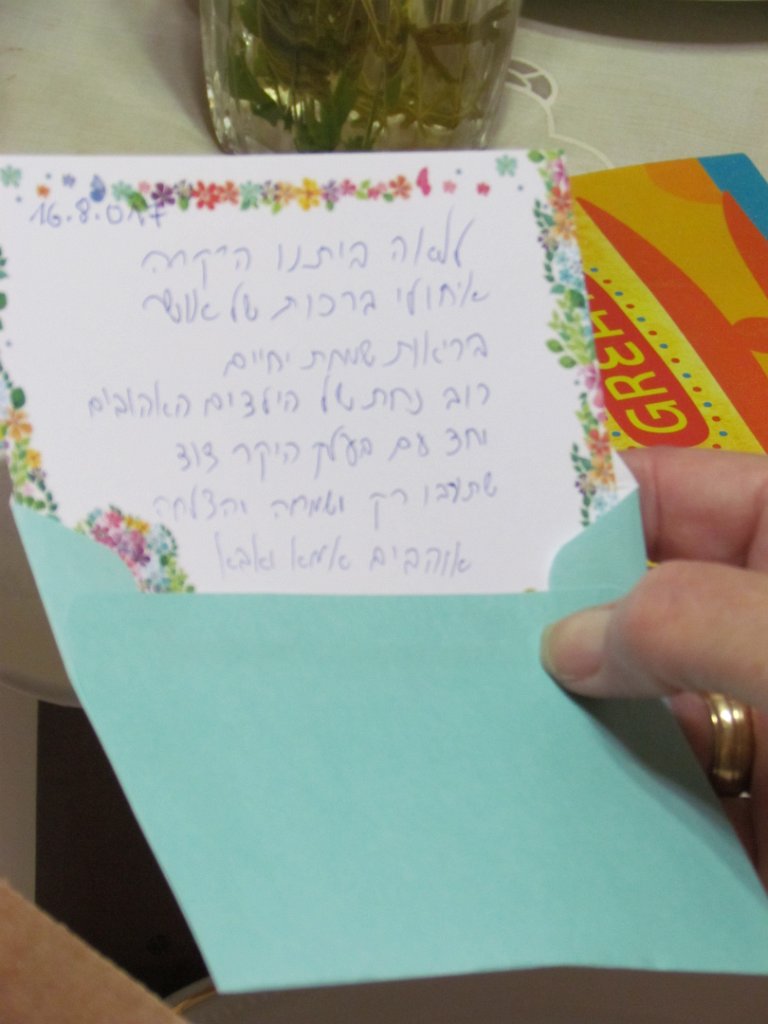 16.8.017
ללאה ביתנו היקרה
איחולי ברכות של אושר
בריאות שמחת חיים
רוב נחת של הילדים האהובים
יחד עם בעלך היקר דוד
שתדעו רק ושמחה והצלחה
אוהבים אמא ואבא
GREE